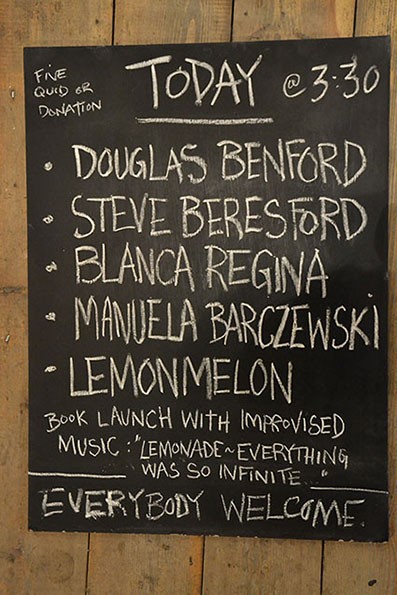 FIVE
QUID OR
DONATION
TODAY @ 3:30
• DOUGLAS BENFORD
• STEVE BERESFORD
• BLANCA REGINA
• MANUELA BARCZEWSKI
• LEMONMELON
BOOK LAUNCH WITH IMPROVISED
MUSIC: "LEMONADE ~ EVERYTHING
WAS SO INFINITE..."
EVERYBODY WELCOME